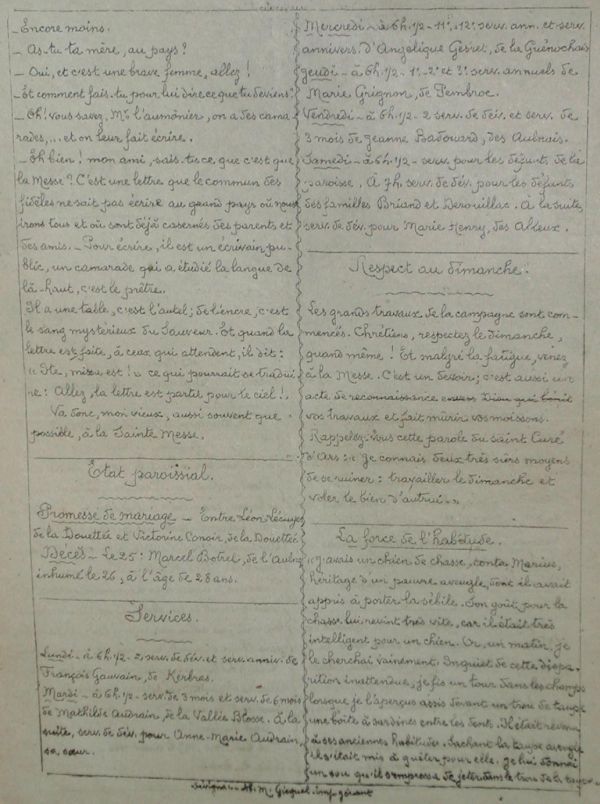 — Encore moins.
— As-tu ta mère, au pays ?
— Oui, et c'est une brave femme, allez !
— Et comment fais-tu pour lui dire ce que tu deviens ?
— Oh ! vous savez, Mr l'aumônier, on a des cama-
rades,... et on leur fait écrire.
— Eh bien ! mon ami, sais-tu ce que c'est que
la Messe ? C'est une lettre que le commun des
fidèles ne sait pas écrire au grand pays où nous
irons tous et où sont déjà casernés des parents et
des amis. — Pour écrire, il est un écrivain pu-
blic, un camarade qui a étudié la langue de
là-haut, c'est le prêtre.
Il a une table, c'est l'autel ; de l'encre, c'est
le sang mystérieux du Sauveur. Et quand la
lettre est faite, à ceux qui attendent, il dit :
« Ite, missa est ! » ce qui pourrait se tradui-
re : Allez, la lettre est partie pour le ciel !.
Va donc, mon vieux, aussi souvent que
possible, à la Sainte Messe.
Etat paroissial.
Promesse de mariage — Entre Léon Lécuyer
de la Douettée et Victorine Conoir, de la Douettée
Décès — Le 25 : Marcel Botrel, de l'Aulne
inhumé le 26, à l'âge de 28 ans.
Services.
Lundi — à 6h.1/2 — 2 serv. de dév. et serv. anniv. de
François Gauvain, de Kerbres.
Mardi — à 6h.1/2 — serv. de 3 mois et serv. de 6 mois
de Mathilde Audrain, de la Vallée Blosse. À la
suite, serv. de dév. pour Anne-Marie Audrain,
sa sœur.
Mercredi — à 6h.1/2 — 11e, 12e serv. ann. et serv.
annivers. d'Angélique Gesret, de la Guénochais
Jeudi — à 6h.1/2 — 1er 2e et 3e serv. annuels de
Marie Grignon, de Pembroc.
Vendredi — à 6h.1/2 — 2 serv. de dév. et serv. de
3 mois de Jeanne Badouard, des Aubnais.
Samedi — à 6h.1/2 — serv. pour les défunts de la
paroisse. À 7h. serv. de dév. pour les défunts
des familles Briand et Derouillac. À la suite,
serv. de dév. pour Marie Henry, des Alleux.
Respect au dimanche.
Les grands travaux de la campagne sont com-
mencés. Chrétiens, respectez le dimanche,
quand même ! Et malgré la fatigue, venez
à la Messe. C'est un devoir ; c'est aussi un
acte de reconnaissance envers Dieu qui bénit
vos travaux et fait mûrir vos moissons.
Rappelez-vous cette parole du saint Curé
d'Ars : « Je connais deux très sûrs moyens
de se ruiner : travailler le dimanche et
voler le bien d'autrui. »
La force de l'habitude.
« J'avais un chien de chasse, conta Marius,
héritage d'un pauvre aveugle, donc il avait
appris à porter la sébile. Son goût pour la
chasse lui revint très vite, car il était très
intelligent pour un chien. Or, un matin, je
le cherchai vainement. Inquiet de cette dispa-
rition inattendue, je fis un tour dans les champs
lorsque je l'aperçus assis devant un trou de taupe
une boîte à sardines entre les dents. Il était revenu
à ses anciennes habitudes. Sachant la taupe aveugle
il s'était mis à quêter pour elle. Je lui donnai
un sou qu'il s'empressa de jeter dans le trou de la taupe.
Sévignac. M. Gicquel. imp. gérant